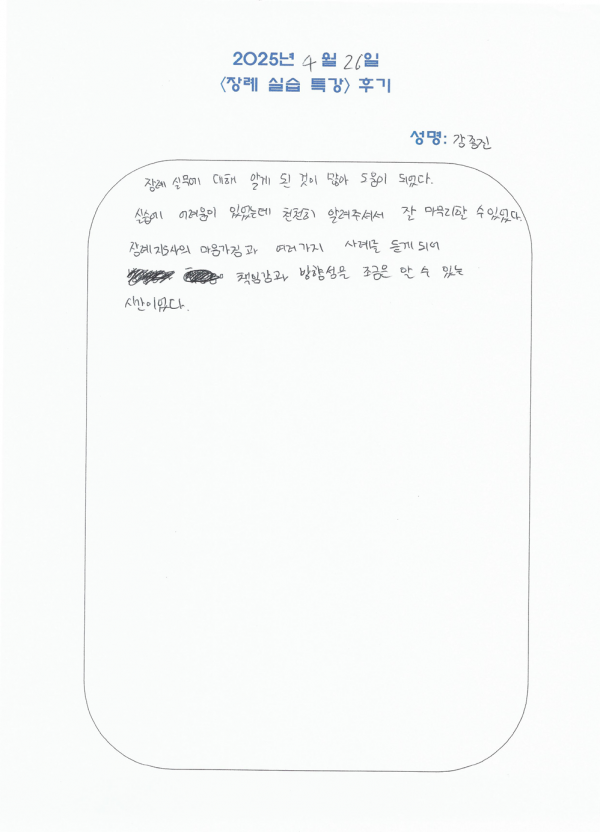 2025년 4월 26일
<장례 실습 특강> 후기
성명: 강종진
장례 실무에 대해 알게 된 것이 많아 도움이 되었다.
실습에 어려움이 있었는데 천천히 알려주셔서 잘 마무리할 수 있었다.
장례지도사의 마음가짐과 여러가지 사례를 듣게 되어
책임감과 방향성을 조금은 알 수 있는
시간이었다.